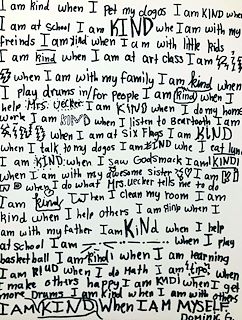 I am kind when I pet my dogos I am KIND when
I am at school I am KIND whe I am with my
freinds I am kind when I am with little kids
I am kind when I am at art class I am
when I am with my family I am kind when
I play drums in/for people I am kind when I
help Mrs. Uecker I am KIND when I do my home
work I am KIND when I listen to Beartooth I am
when I am at Six Flags I am KIND
when I talk to my dogos I am KIND whe I eat lunch
I am KIND when I saw Godsmack I am KIND
when I am with my awesome sister I am KI
ND when I do what Mrs. Uecker tells me to do
I am kind when I clean my room I am
kind when I help others I am kind when I
am with my father I am KiNd when I help
at School I am when I play
basketball I am kind when I am learning
I am KIND when I do math I am when
I make others happy I am KIND when I get
more Drums I am kind when I am with others
I AM KIND When I AM MYSELF
Dominic G.